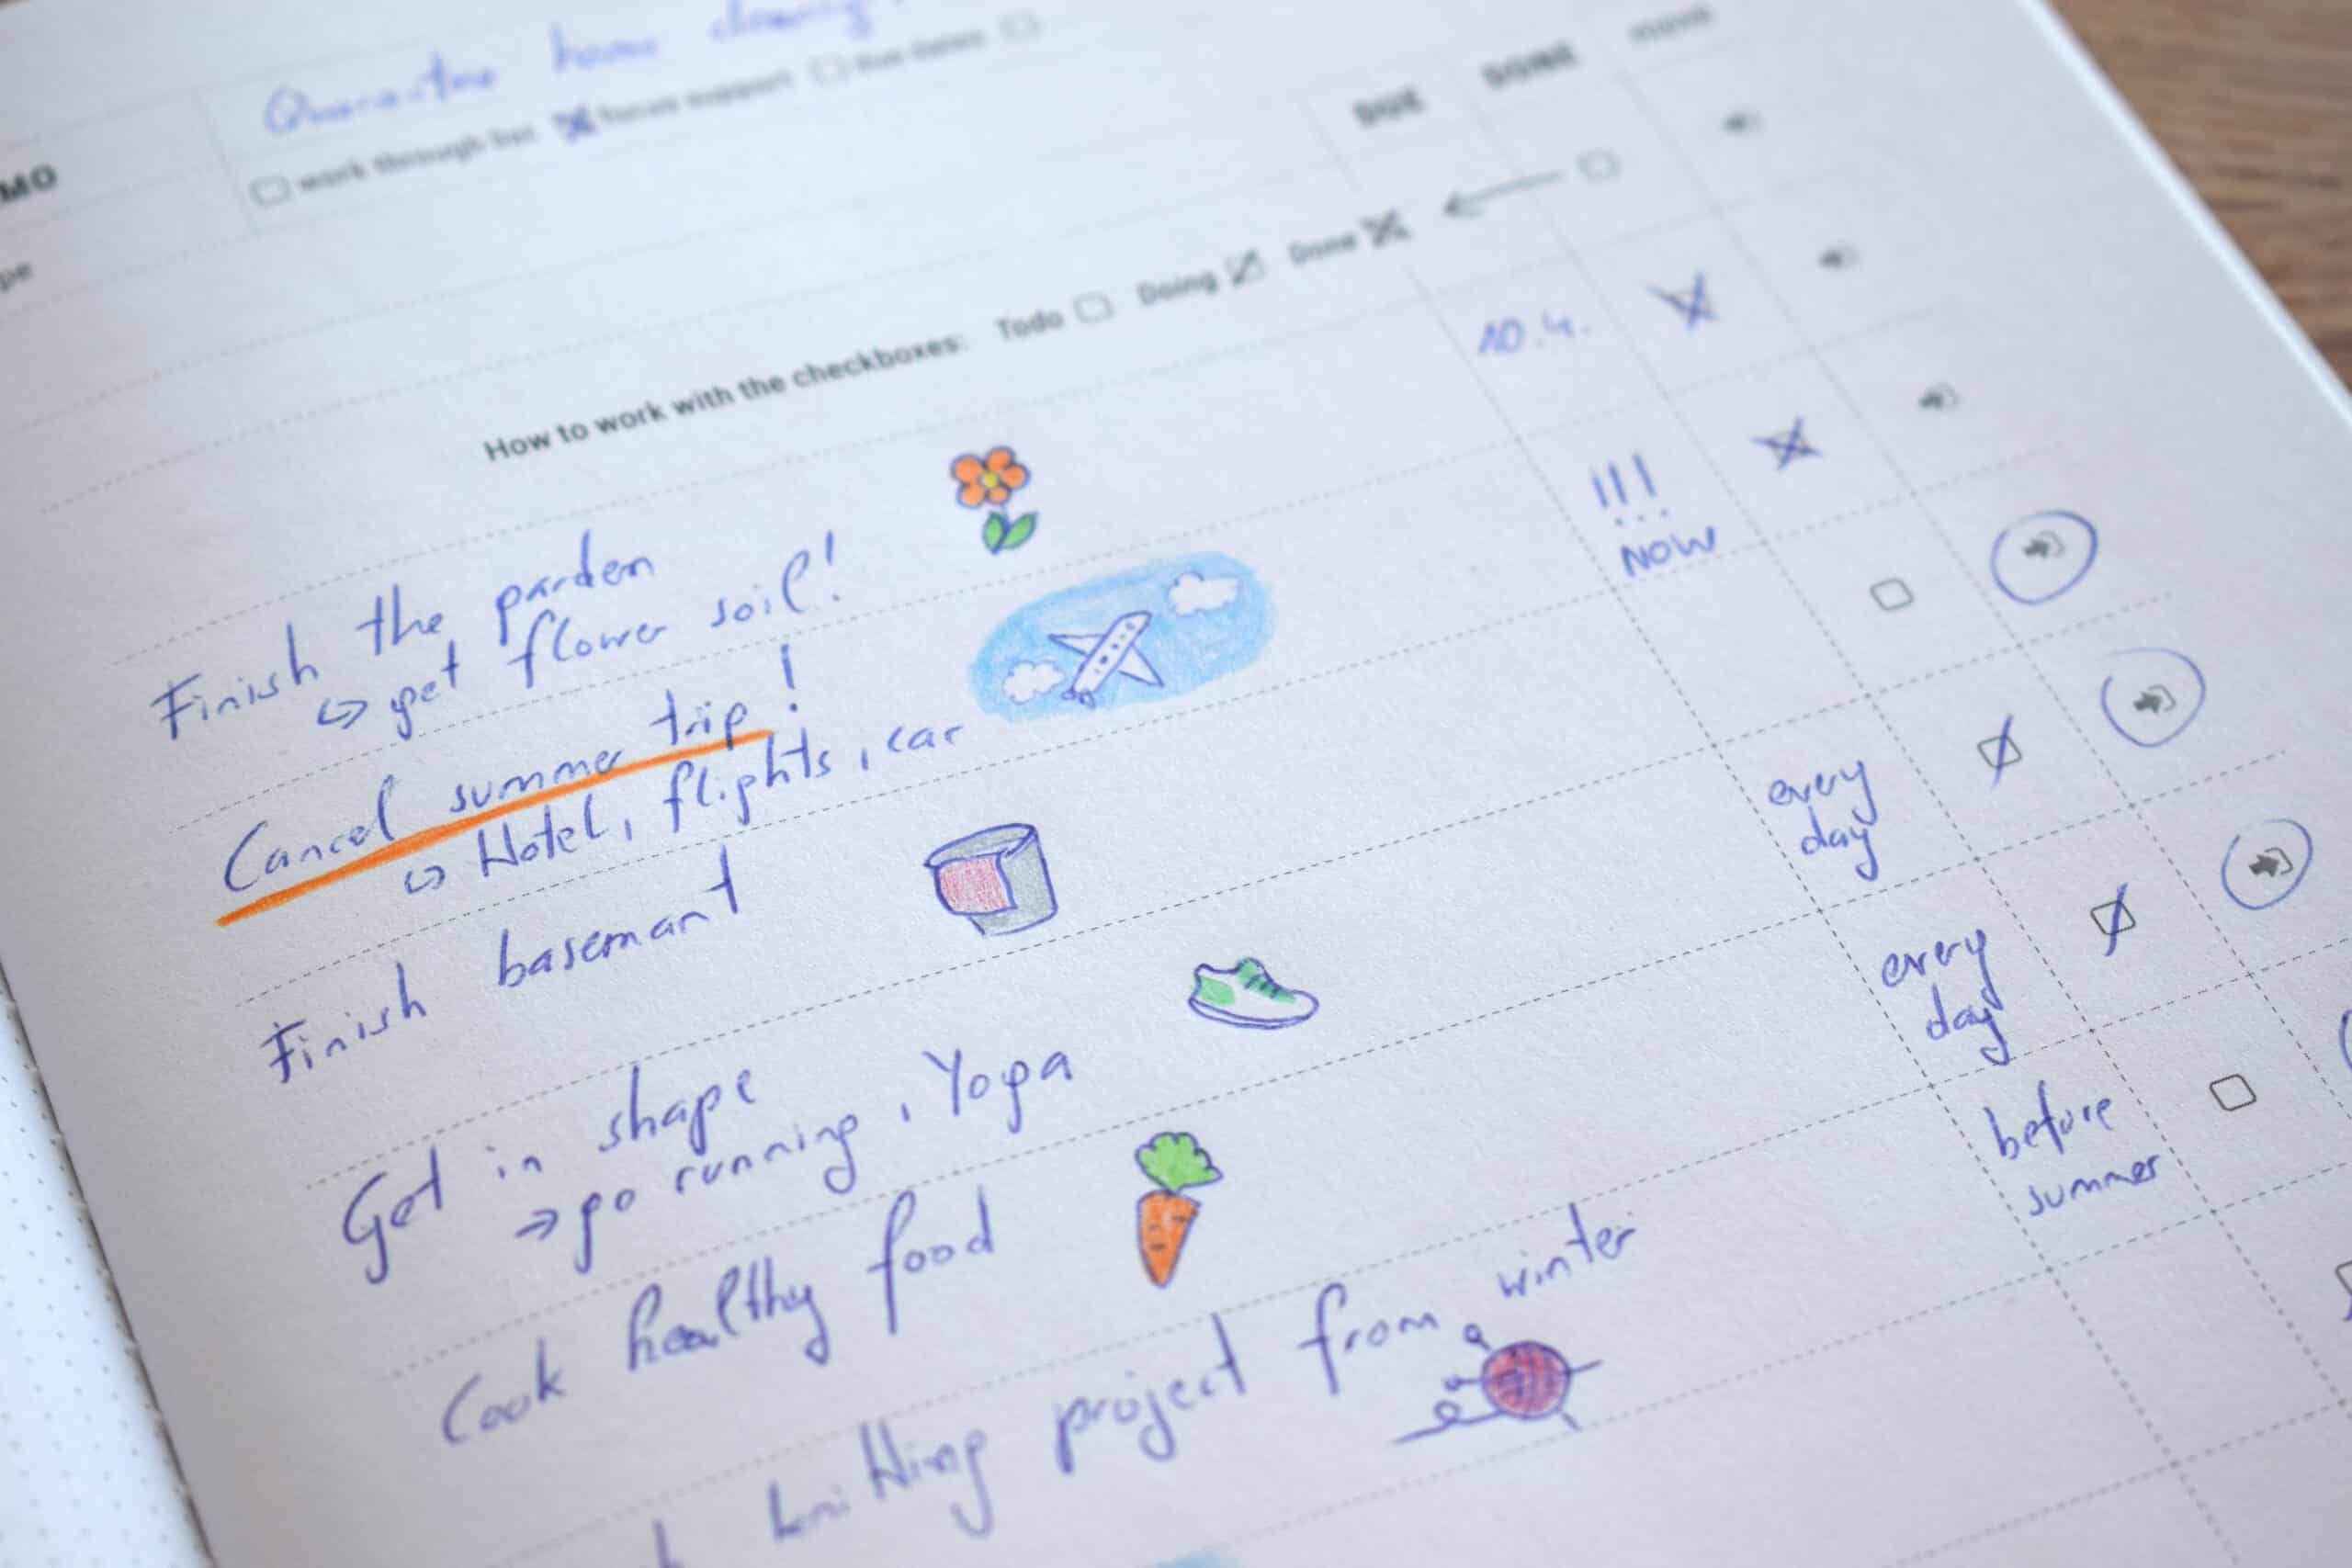 Quarantine home cleaning
MO
work through list focus support due dates
pe
DUE DONE move
How to work with the checkboxes: Todo Doing Done
Finish the garden
↳ get flower soil!
10.4.
Cancel summer trip!
↳ Hotel, flights, car
!!!
NOW
Finish basemant
Get in shape
→ go running, Yoga
every
day
Cook healthy food
every
day
knitting project from winter
before
summer